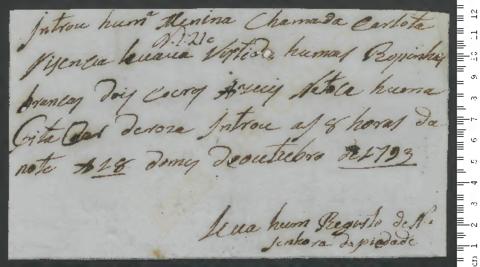 Introu huma Menina Chamada Carlota
N. 1212
Visencia levava Vistido humas Ropinhas
brancas dois coeiros Azuis Atoca huma
Fita Cor deroza Introu as 8 horas da
note A 18 domes deoutubro de 1793
Leva hum Registo de N.
Senhora da piedade